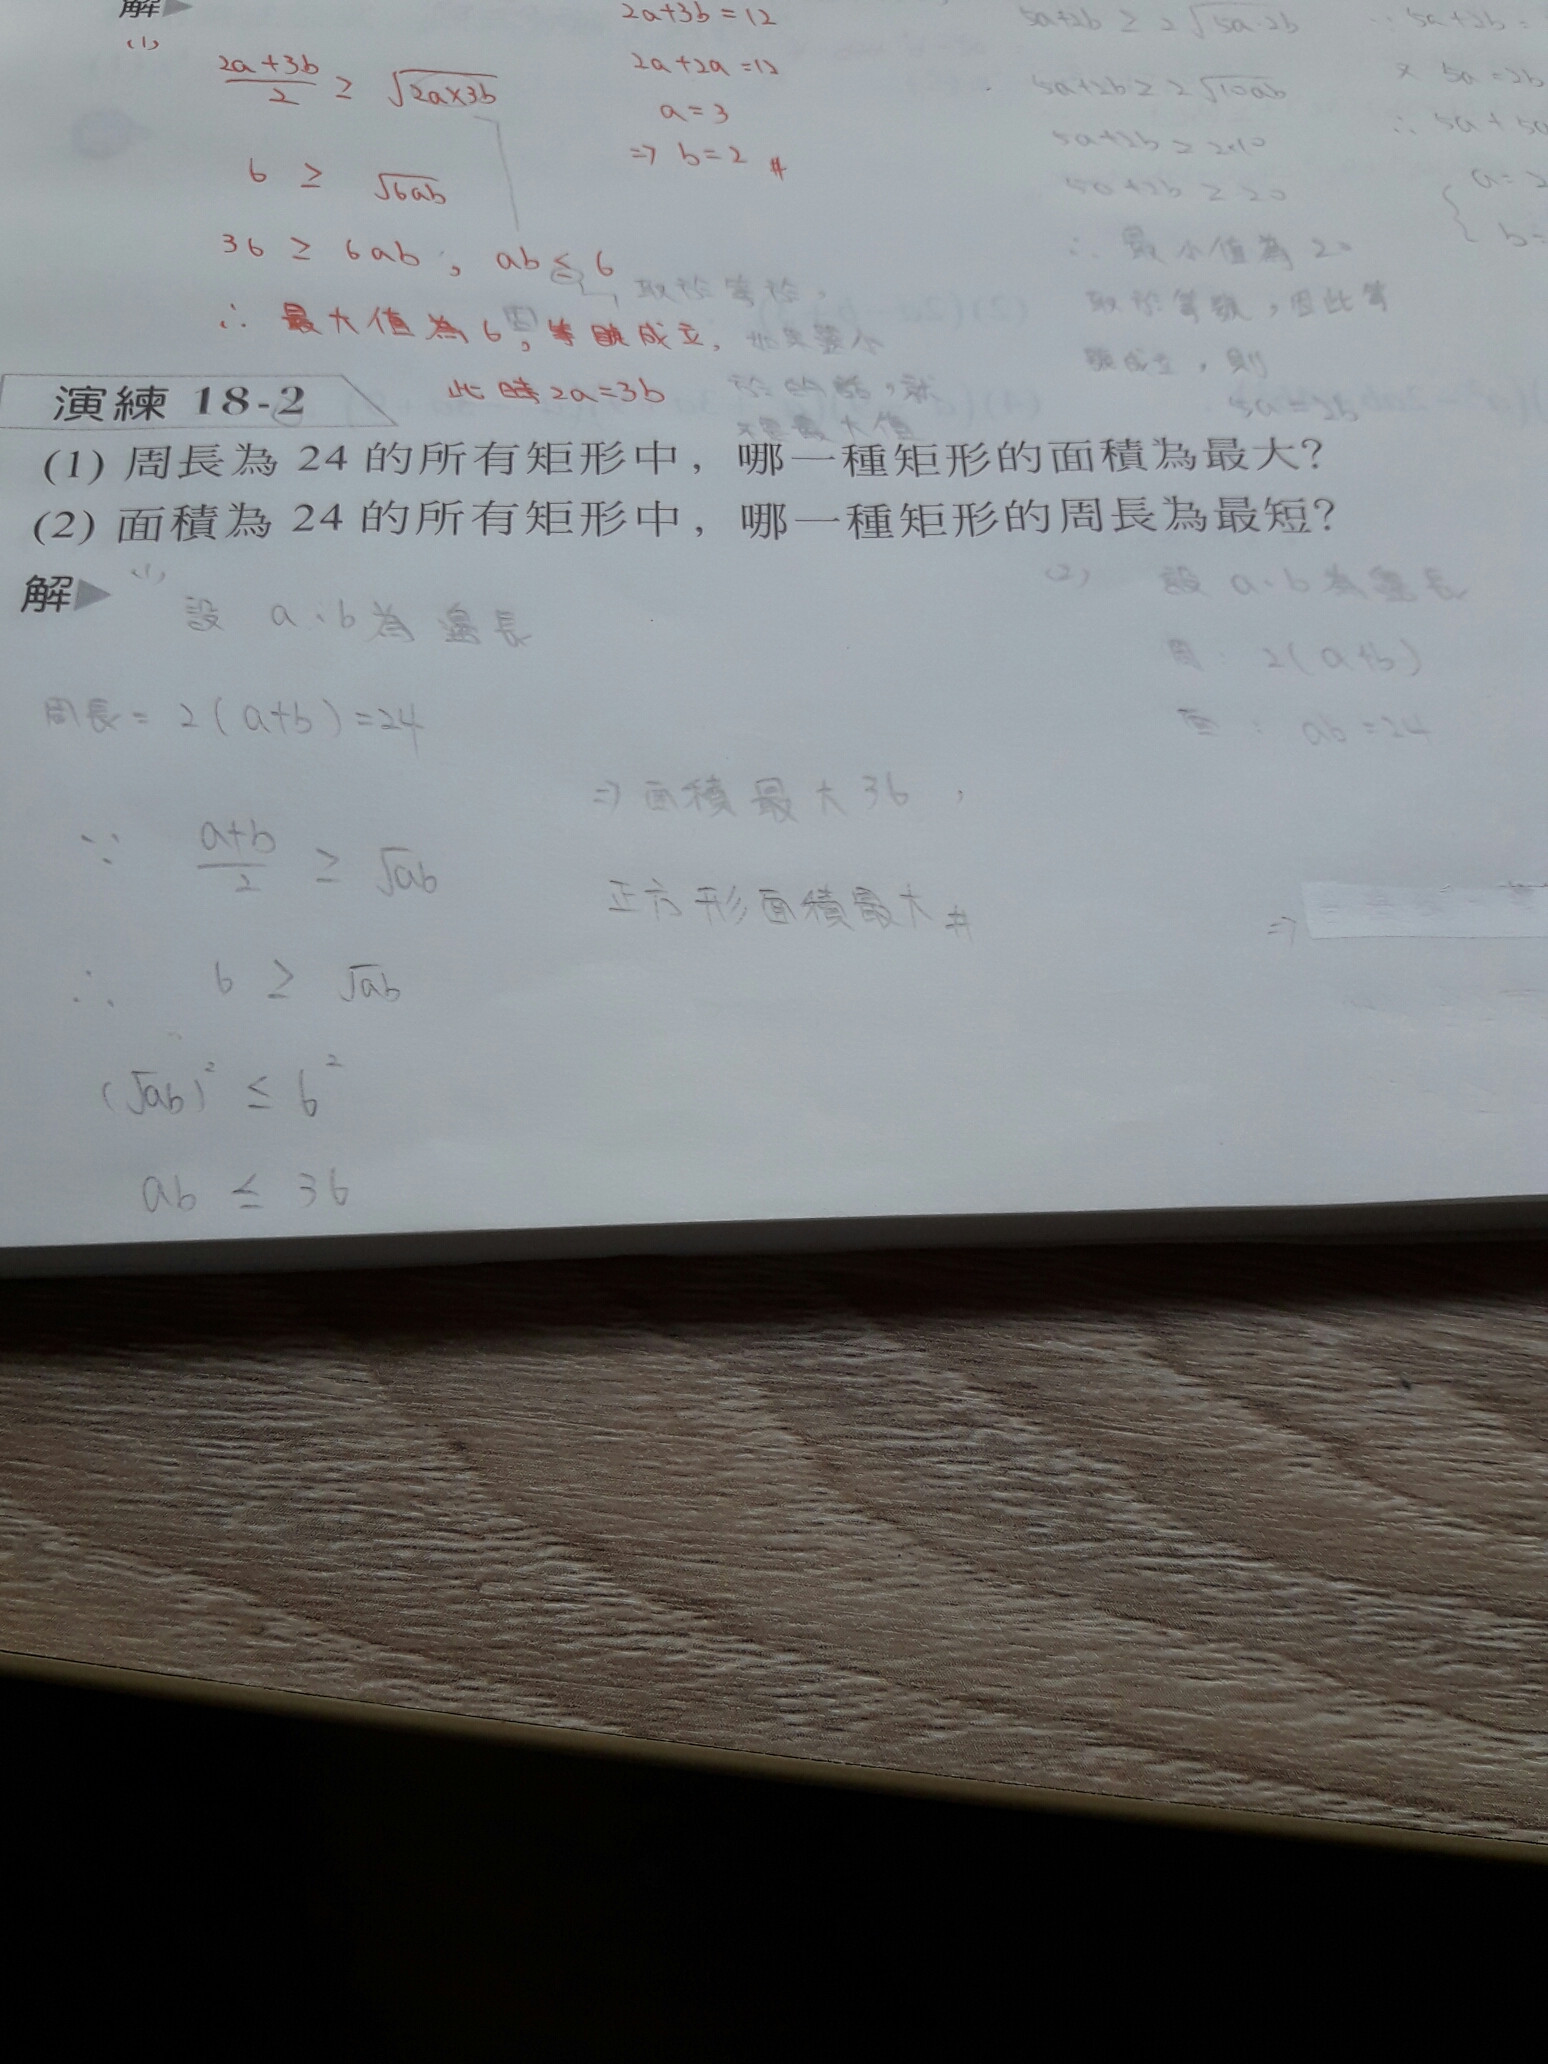 解
(1)
2a+3b/2 ≥ √2a×3b
6 ≥ √6ab
36 ≥ 6ab , ab ≤ 6
∴ 最大值為6, 因等號成立,
此時2a=3b
2a+3b=12
2a+2a=12
a=3
⇒ b=2 #
取於等於,
於的話,就
不是最大值
5a+2b ≥ 2√5a·2b
5a+2b ≥ 2√10ab
5a+2b ≥ 2·10
5a+2b ≥ 20
∴ 最小值為20
取於等號,因此等
號成立,則
5a=2b
∵ 5a+2b=
又 5a=2b
∴ 5a+5a
a=2
b=
演練 18-2
(1) 周長為 24 的所有矩形中，哪一種矩形的面積為最大?
(2) 面積為 24 的所有矩形中，哪一種矩形的周長為最短?
解
(1)
設 a、b為邊長
周長= 2(a+b)=24
∵ a+b/2 ≥ √ab
∴ 6 ≥ √ab
(√ab)² ≤ 6²
ab ≤ 36
⇒ 面積最大36,
正方形面積最大#
(2) 設 a、b為邊長
周: 2(a+b)
面: ab=24
⇒